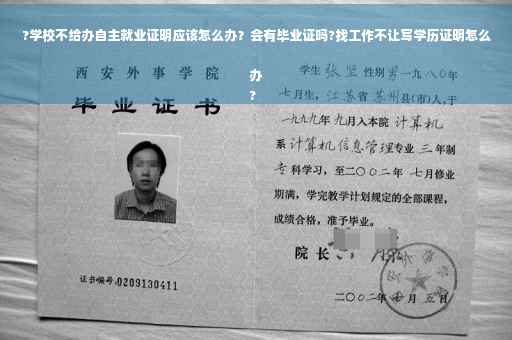 ?学校不给办自主就业证明应该怎么办？会有毕业证吗?找工作不让写学历证明怎么
办
?
西安外事学院
毕业证书
证书编号:0209130411
学生 张坚 性别 男 一九八〇年
七月生，江苏省苏州县(市)人，于
一九九九年九月入本院 计算机
系 计算机信息管理专业 三 年制
专科学习，至二〇〇二年 七月修业
期满，学完教学计划规定的全部课程，
成绩合格，准予毕业。
院长
二〇〇二年 月 五日